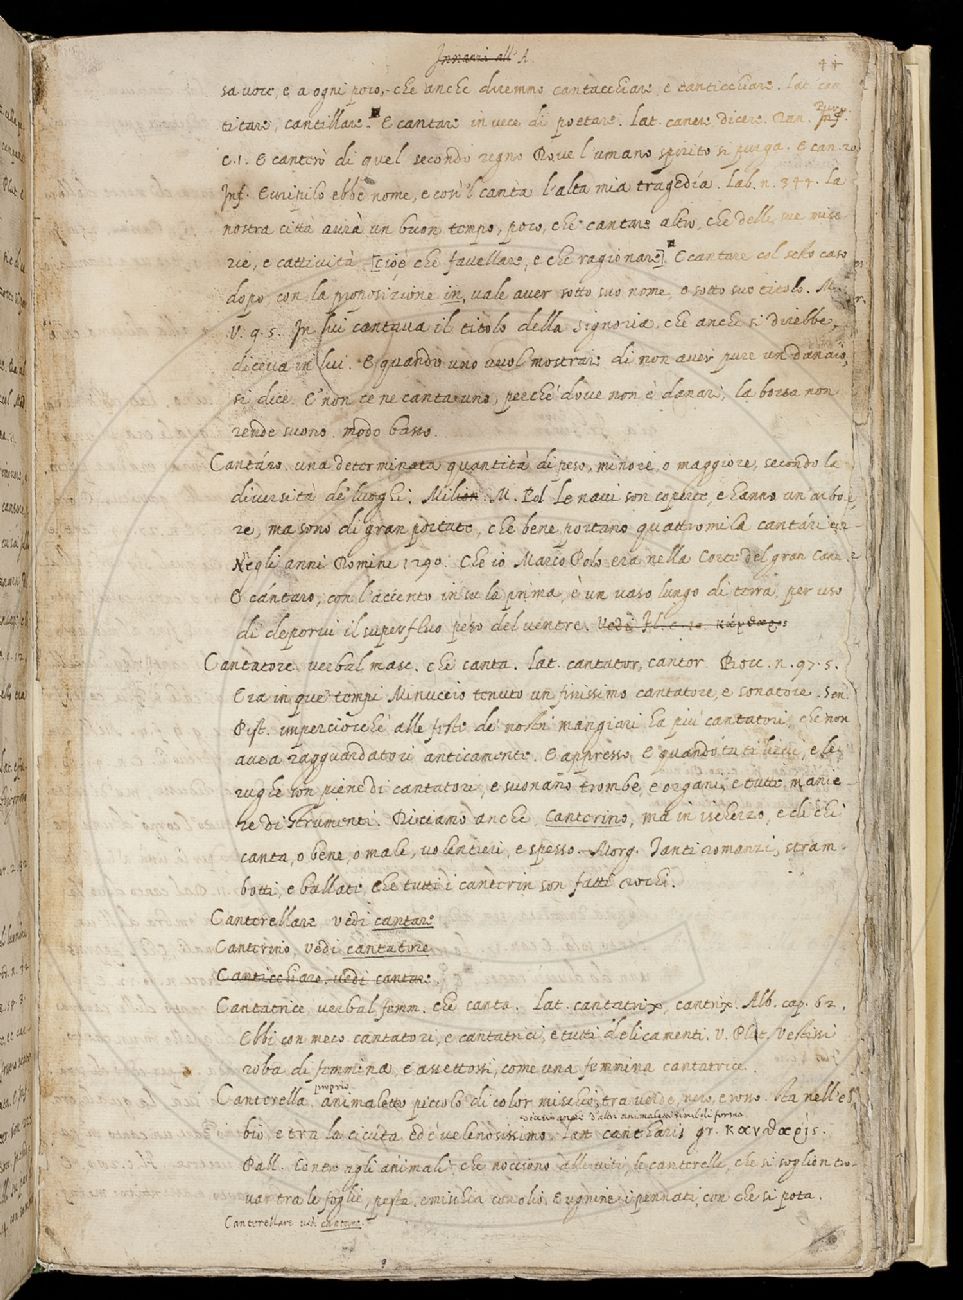 Innanzi all' A.
44
sa voce, e a ogni poco, che anche diremmo cantacchiare, e canticchiare. Lat. can
titare, cantillare. E cantare in vece di poetare. Lat. canere dicere. Dan. Purg.
Inf.
C. 1. E canterò di quel secondo regno Dove l'umano spirito si purga. E can. 20
Inf. Euripilo ebbe nome, e così 'l canta l'alta mia tragedía. Lab. n. 344. La
nostra città avrà un buon tempo, poco, che cantare altro, che delle sue mise
rie, e cattività [cioè che favellare, e che ragionare]. E cantare col sesto caso
dopo, con la proposizione in, vale aver sotto suo nome, o sotto suo titolo. M.
V. 9. 5. In lui cantava il titolo della signoria, che anche si direbbe,
diceva in lui. E quando uno vuol mostrare di non aver pure un danaio,
si dice. E' non ce ne canta uno, perché dove non è danari, la borsa non
rende suono. modo basso.
Cantáro. una determinata quantità di peso, minore, o maggiore, secondo le
diversità de' luoghi. Milion. M. Pol Le navi son coperte, e hanno un arbo
re, ma sono di gran portate, che bene portano quattromila cantári
Negli anni Domini 1290. Che io Marco Polo era nella Corte del gran Cane
E cántaro, con l'accento in su la prima, è un vaso lungo di terra per uso
di deporvi il superfluo peso del ventre. Vedi
Cantatore verbal masc. che canta. Lat. cantator, cantor. Bocc. n. 97. 5.
Era in que' tempi Minuccio tenuto un finissimo cantatore, e sonatore. Sen.
Pist. imperciocché alle feste de' nostri mangiari ha più cantatori, che non
avea ragguardatori anticamente. E appresso. E quando tutti li, e le
rughe son piene di cantatori, e suonano trombe, e organi, e tutte manie-
re di strumenti. Diciamo anche Canterino, ma in ischerzo, e di chi
canta, o bene, o male, volentieri, e spesso. Morg. Tanti romanzi, stram-
botti, e ballate Che tutti i canterin son fatti rochi.
Canterellare vedi cantare
Canterino vedi cantatore
Canticchiare, vedi cantare
Cantatrice verbal femm. che canta. Lat. cantatrix, cantrix. Alb. cap. 62.
Ebbi con meco cantatori, e cantatrici, e tutti dilicamenti. V. Plut. Vestissi
roba di femmina, e assettossi, come una femmina cantatrice.
proprio
Canterella. animaletto piccolo di color mischio, tra verde, nero, e rosso. Sta nell'e
d'altri animaletti simili di forma
bio, e tra la cicuta ed è velenosissimo. Lat. cantharis gr. κανθαρίς.
Pall. Contro agli animali che nocciono alle viti, le canterelle, che si soglion tro-
var tra le foglie, pesta, e mischia con olio, e ugnine i pennati, con che si pota.
Canterellare ved. cantare.